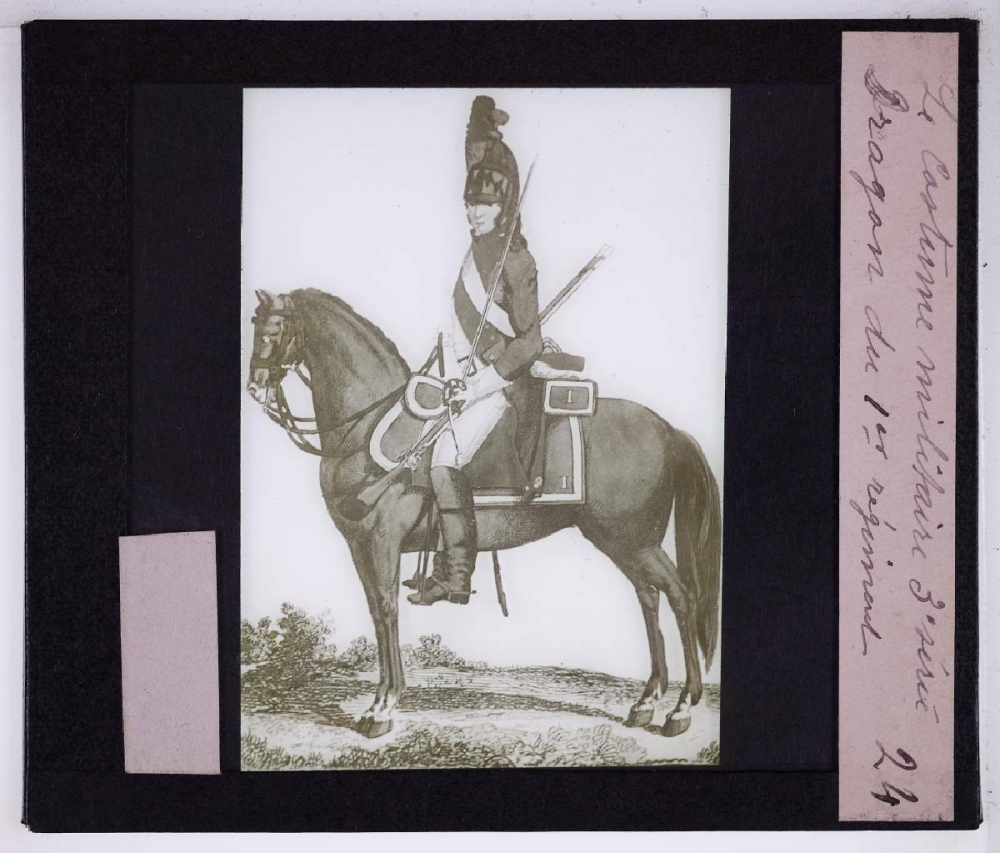 Le Costume militaire 3e série
Dragon du 1er régiment
24
1
1